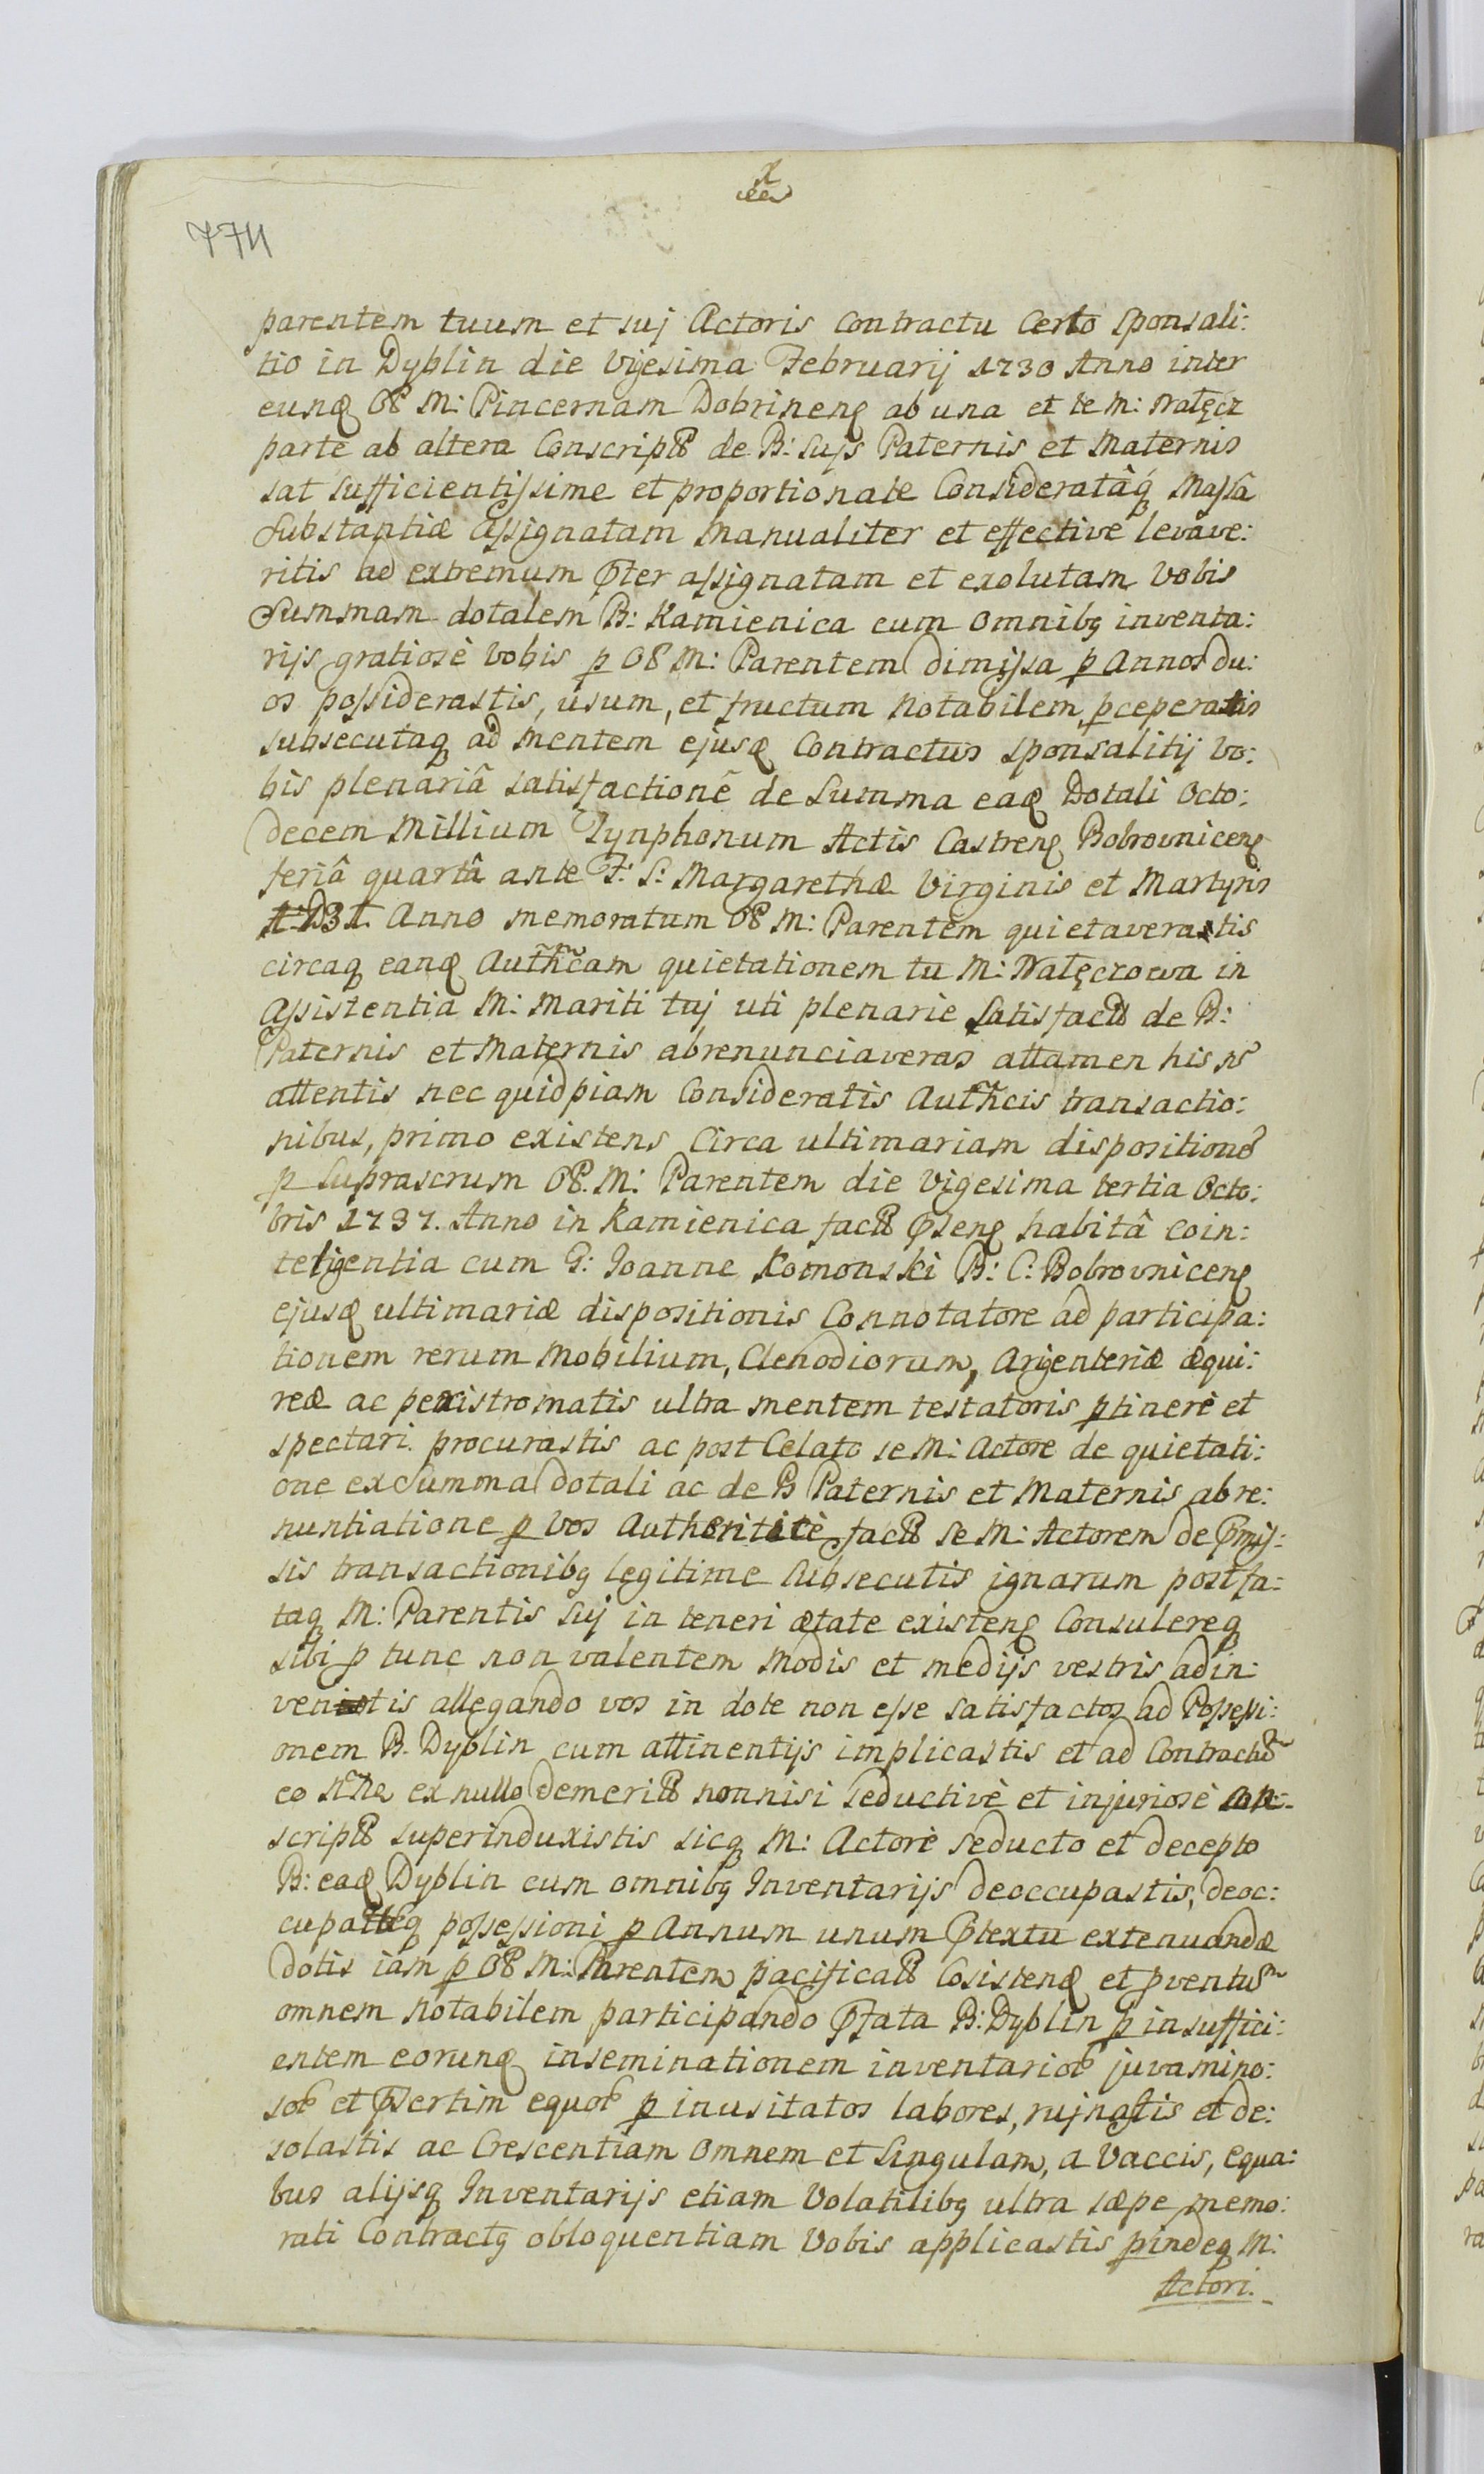 774
parentem tuum et suj Actoris Contractu Certo Sponsali:
tio in Dyblin die Vigesima Februarij 1730 Anno inter
eunq OP M: Pincernam Dobrinenq ab una et te M: Nałęcz
parte ab altera Conscripto de B: Sujs Paternis et Maternis
sat sufficientissime et proportionate Consideratâq Massâ
Substantiæ assignatam Manualiter et effective levave:
ritis ad extremum Pter assignatam et exolutam Vobis
Summam dotalem B: Kamienica cum omnibq inventa:
rijs gratiosè Vobis p OP M: Parentem dimissa p Annos du:
os possiderastis, usum, et fructum Notabilem pceperatis
subsecutaq ad mentem ejusq Contractus sponsalitij Vo:
bis plenariâ satisfactionē de Summa eaq Dotali Octo:
decem Millium Tynphonum Actis Castrenq Bobrovnicenq
feriâ quartâ ante F: S: Margarethæ Virginis et Martyris
1731 Anno memoratum OP M: Parentem quietaveratis
circaq eanq Authcam quietationem tu M: Nałęczowa in
Assistentia M: Mariti tuj uti plenarie Satisfacta de B:
Paternis et Maternis abrenunciaveras attamen his nō
attentis nec quidpiam Consideratis Authcis transactio:
nibus, primo existens Circa ultimariam dispositionē
p Suprascrum OP. M: Parentem die Vigesima tertia Octo:
bris 1737. Anno in Kamienica facta Psenq habitâ Coin:
teligentia cum G: Joanne Komonski B: C: Bobrovnicenq
ejusq ultimariæ dispositionis Connotatore ad participa:
tionem rerum Mobilium, Clenodiorum, Argenteriæ æqui:
reæ ac peristromatis ultra mentem testatoris ptinere et
spectari procurastis ac post Celato se M: Actore de quietati:
one ex Summa dotali ac de B Paternis et Maternis abre:
nuntiatione p vos Autheriticè facta se M: Actorem de Pmis:
sis transactionibq legitime subsecutis ignarum post fa:
taq M: Parentis Suj in teneri ætate existenq Consulereq
sibi p tunc non valentem Modis et medijs vestris adin:
ventis allegando vos in dote non esse Satisfactos ad Possessi:
onem B. Dyblin cum attinentijs implicastis et ad Contractū
eo ex nullo demerito nonnisi seductivè et injuriosè con:
scripto superinduxistis sicq M: Actorè seducto et decepto
B: eaq Dyblin cum omnibq Inventarijs deoccupastis, deoc:
cupatteq possessioni p Annum unum Ptextu extenuandæ
dotis iam p OP M: Parentem pacificato Cosistenq et pventū
omnem Notabilem participando Pfata B: Dyblin p insuffici:
entem eorunq inseminationem inventarior juvamino:
sor et Psertim equor p inusitatos labores, rujnastis et de:
solastis ac Crescentiam omnem et Singulam, a Vaccis, equa:
bus alijsq Inventarijs etiam Volatilibq ultra sæpe memo:
rati Contractq obloquentiam Vobis applicastis pindeq M:
Actori.